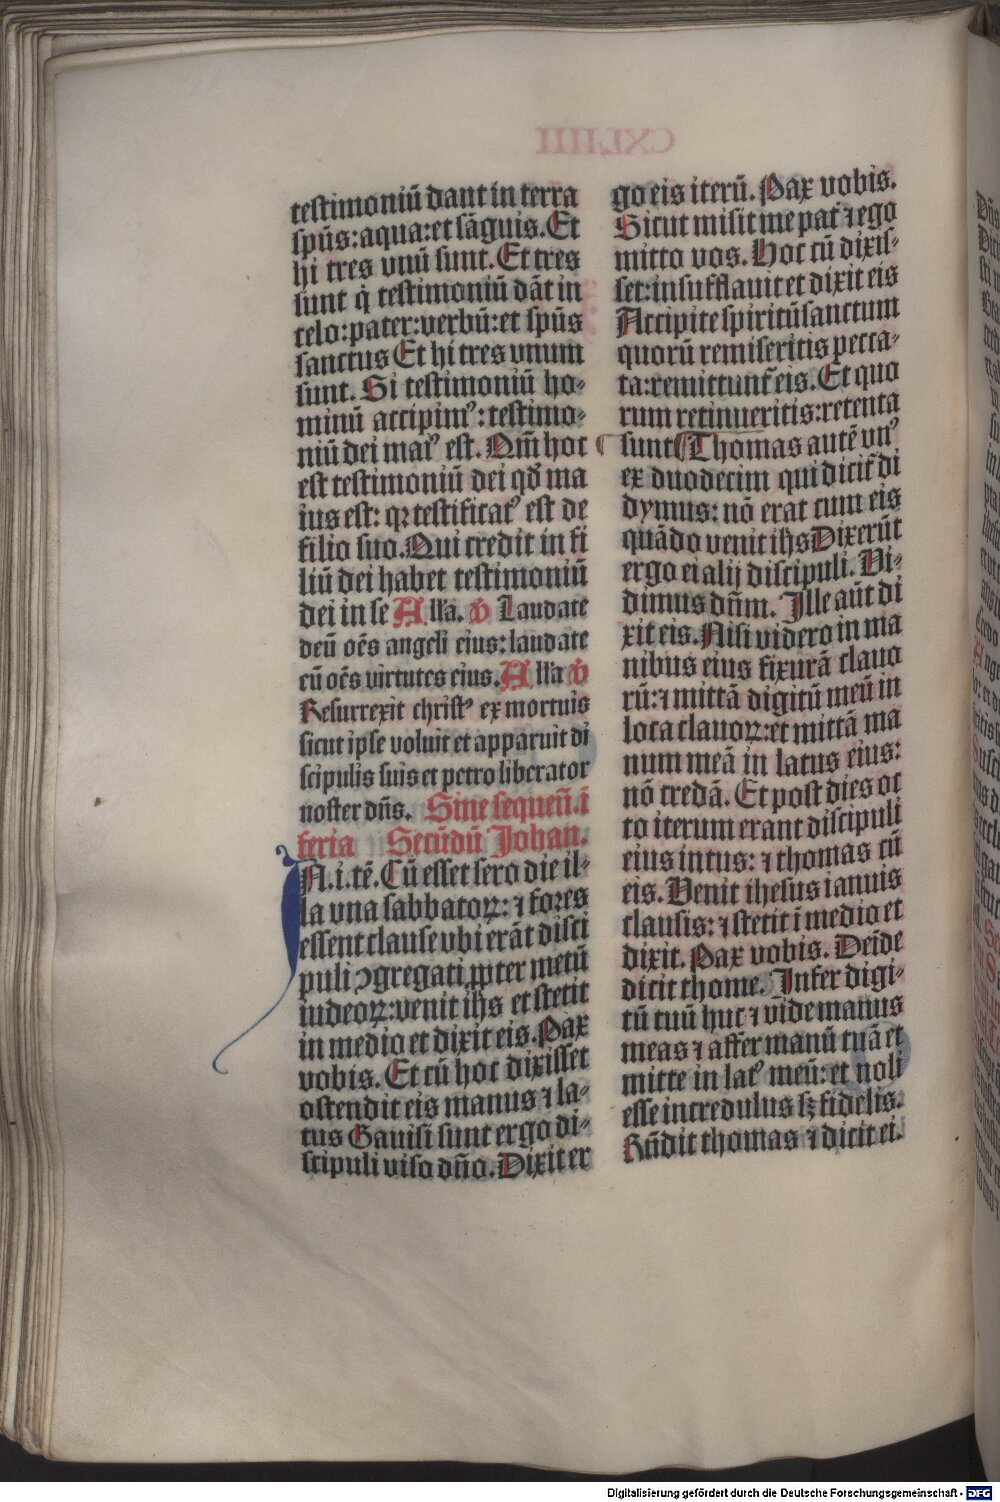 testimoniū dant in terra
sp̄us: aqua: et sāguis. Et
hi tres vnū sunt. Et tres
sunt q̇ testimoniū dāt in
celo: pater: verbū: et sp̄us
sanctus Et hi tres vnum
sunt. Si testimoniū ho-
minū accipimꝰ: testimo-
niū dei maiꝰ est. Qm̄ hoc
est testimoniū dei qd̓ ma
ius est: qꝛ testificatꝰ est de
filio suo. Qui credit in fi
liū dei habet testimoniū
dei in se Alľa. ℣ Laudate
deū oēs angeli eius: laudate
eū oēs virtutes eius. Alľa ℣
Resurrexit christꝰ ex mortuis
sicut ipse voluit et apparuit di
scipulis suis et petro liberator
noster dn̄s. Sine sequeň. ī
feria Secūdū Johan.
IN.i.tē. Cū esset sero die il-
la vna sabbatoꝝ: ⁊ fores
essent clause vbi erāt disci
puli ꝯgregati ꝓpter metū
iudeoꝝ: venit ih̄s et stetit
in medio et dixit eis. Pax
vobis. Et cū hoc dixisset
ostendit eis manus ⁊ la-
tus Gauisi sunt ergo di-
scipuli viso dn̄o. Dixit er
go eis iterū. Pax vobis.
Sicut misit me pat̓ ⁊ ego
mitto vos. Hoc cū dixis-
set: insufflauit et dixit eis
Accipite spiritū sanctum
quorū remiseritis pecca-
ta: remittunt̓ eis. Et quo
rum retinueritis: retenta
sunt ¶ Thomas autē vnꝰ
ex duodecim qui dicit̓ di
dymus: nō erat cum eis
quādo venit ih̄s Dixerūt
ergo ei alij discipuli. Vi-
dimus dn̄m. Ille aūt di
xit eis. Nisi videro in ma
nibus eius fixurā clauo
rū: ⁊ mittā digitū meū in
loca clauoꝝ: et mittā ma
num meā in latus eius:
nō credā. Et post dies oc
to iterum erant discipuli
eius intus: ⁊ thomas cū
eis. Venit ihesus ianuis
clausis: ⁊ stetit ī medio et
dixit. Pax vobis. Deīde
dicit thome. Infer digi-
tū tuū huc ⁊ vide manus
meas ⁊ affer manū tuā et
mitte in latꝰ meū: et noli
esse incredulus sꝫ fidelis.
Rn̄dit thomas ⁊ dicit ei.
Digitalisierung gefördert durch die Deutsche Forschungsgemeinschaft - DFG